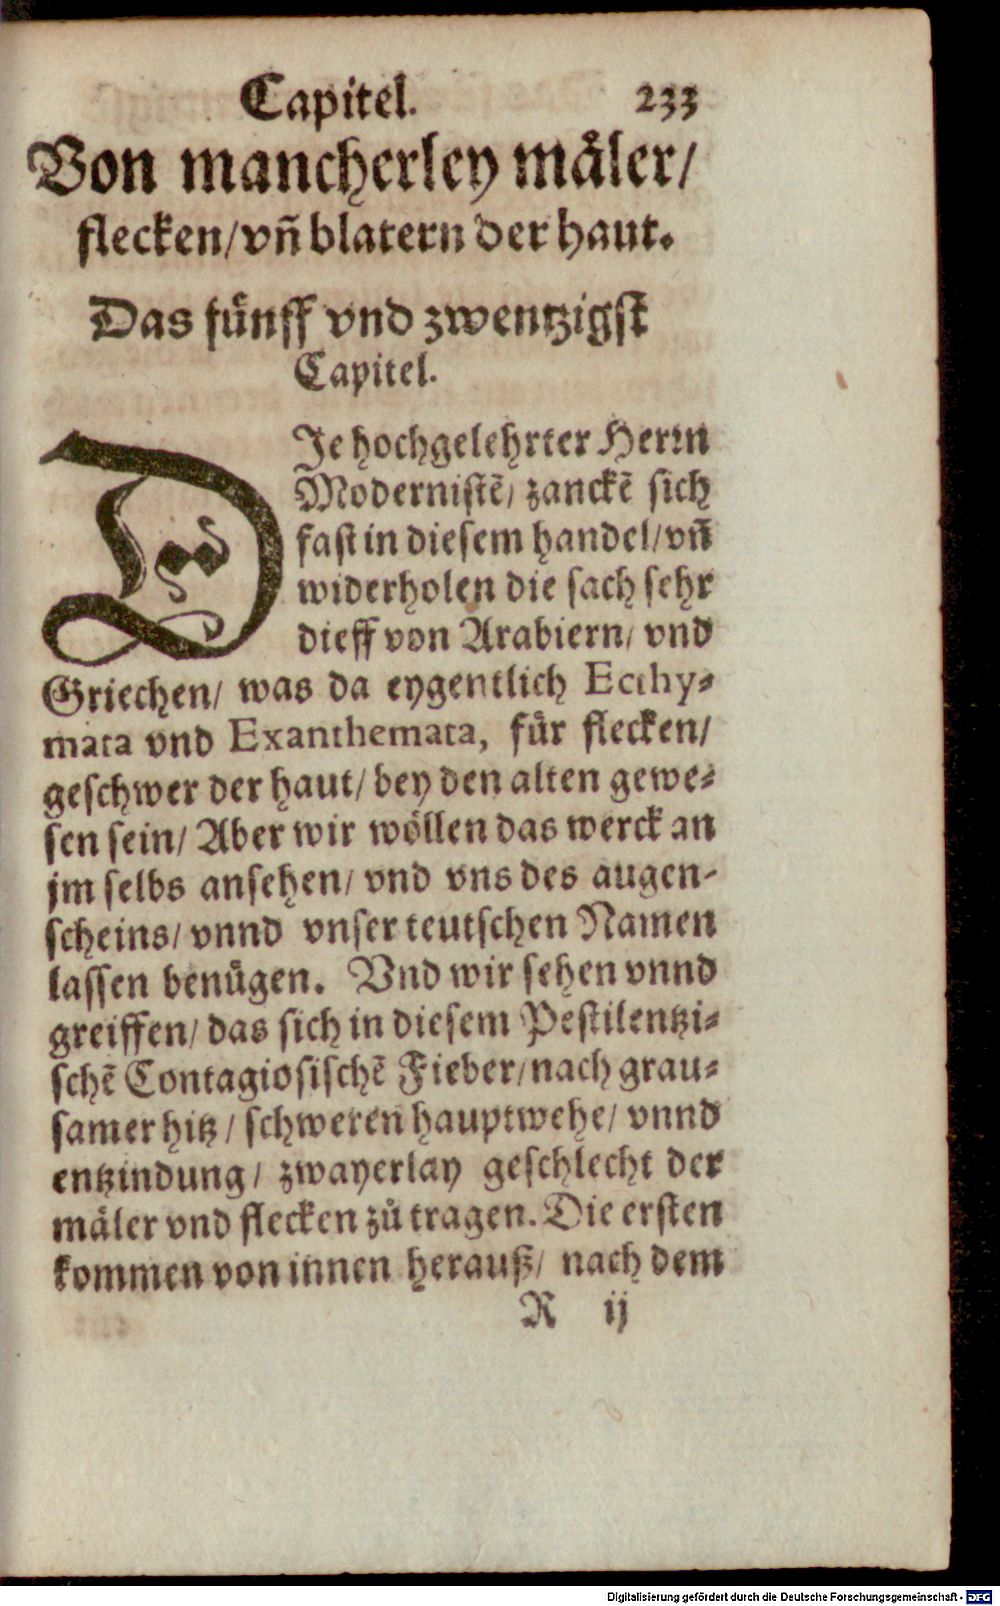 Capitel. 233
Von mancherley mäler/
flecken/vn̄ blatern der haut.
Das fünff vnd zwentzigst
Capitel.
DJe hochgelehrter Herrn
Modernistē/ zanckē sich
fast in diesem handel/vn̄
widerholen die sach sehr
dieff von Arabiern/ vnd
Griechen/ was da eygentlich Ecthy-
mata vnd Exanthemata, für flecken/
geschwer der haut/ bey den alten gewe-
sen sein/ Aber wir wöllen das werck an
jm selbs ansehen/ vnd vns des augen-
scheins/ vnnd vnser teutschen Namen
lassen benügen. Vnd wir sehen vnnd
greiffen/ das sich in diesem Pestilentzi-
schē Contagiosischē Fieber/nach grau-
samer hitz/ schweren hauptwehe/ vnnd
entzindung/ zwayerlay geschlecht der
mäler vnd flecken zů tragen. Die ersten
kommen von innen herauß/ nach dem
R ij
Digitalisierung gefördert durch die Deutsche Forschungsgemeinschaft - DFG